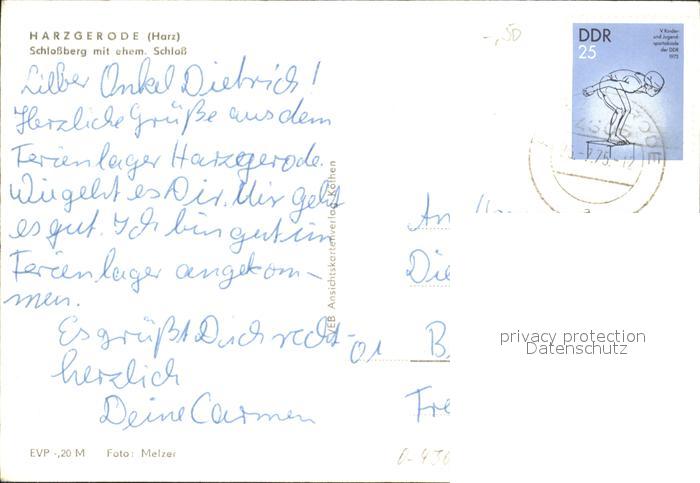 HARZGERODE (Harz)
Schloßberg mit ehem. Schloß
-,50
Lieber Onkel Dietrich!
Herzliche Grüße aus dem
Ferienlager Harzgerode.
Wie geht es Dir. Mir geht
es gut. Ich bin gut im
Ferienlager angekom-
men.
Es grüßt Dich recht
herzlich
Deine Carmen
EVP -,20 M Foto: Melzer
VEB Ansichtskartenverlag Köthen
DDR
25
V. Kinder-
und Jugend-
spartakiade
der DDR
1975
An
Die
B
Fre
privacy protection
Datenschutz